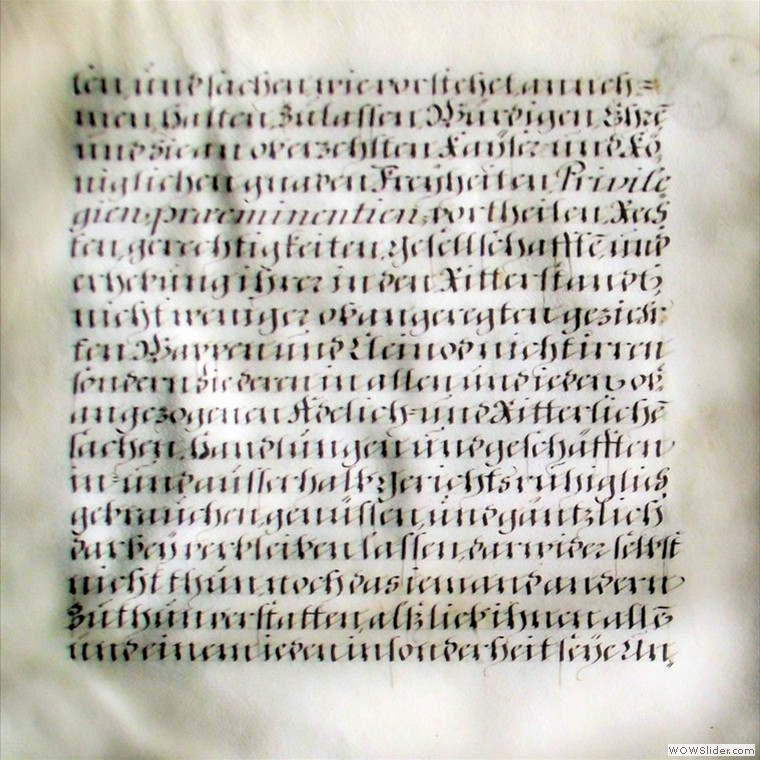 ten, und sachen, wie vorstehet, anneh=
men, halten, Zulassen, Würdigen, Ehrē
und Sie an oberzehlten Kayser: und Kö
niglichen gnaden Freyheiten Privile
gien, præeminentien, vortheilen, Rech
ten, gerechtigkeiten, gesellschafftē und
erhebung ihrer in den Ritterstandt,
nicht weniger obangeregten gezieh
ten Wappen und Cleinod nicht irren
sondern Sie deren in allen und ieden ob
angezogenen Adelich= und Ritterlichē
sachen, Handlungen und geschäfften
in= und ausserhalb Gerichts ruhiglich
gebrauchen, genüssen, und gäntzlich
darbey verbleiben lassen, darwider selbst
nicht thun, noch das iemand andern
Zuthun verstatten, alß lieb ihnen allē
und einem ieden insonderheit seye Un,
WOWSlider.com